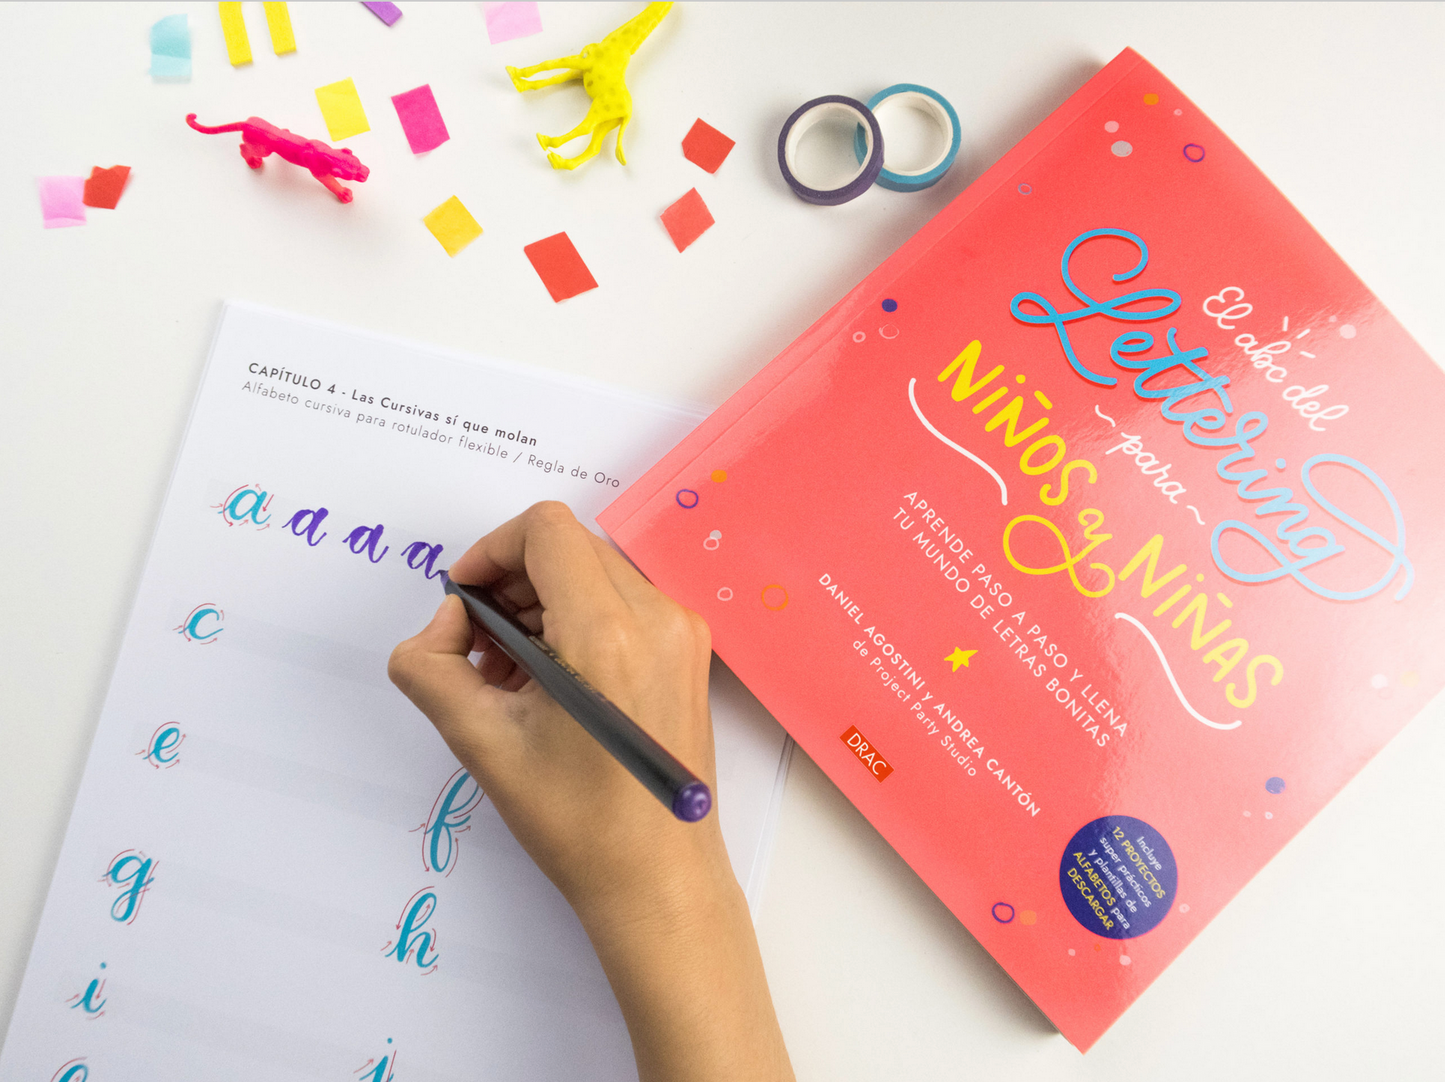 CAPÍTULO 4 - Las Cursivas sí que molan
Alfabeto cursiva para rotulador flexible / Regla de Oro
a a a a
c
e
f
g
h
i
j
El abc del
Lettering
~ para ~
NIÑOS y NIÑAS
APRENDE PASO A PASO Y LLENA
TU MUNDO DE LETRAS BONITAS
DANIEL AGOSTINI Y ANDREA CANTÓN
de Project Party Studio
DRAC
Incluye
12 PROYECTOS
super prácticos
y plantillas de
ALFABETOS para
DESCARGAR